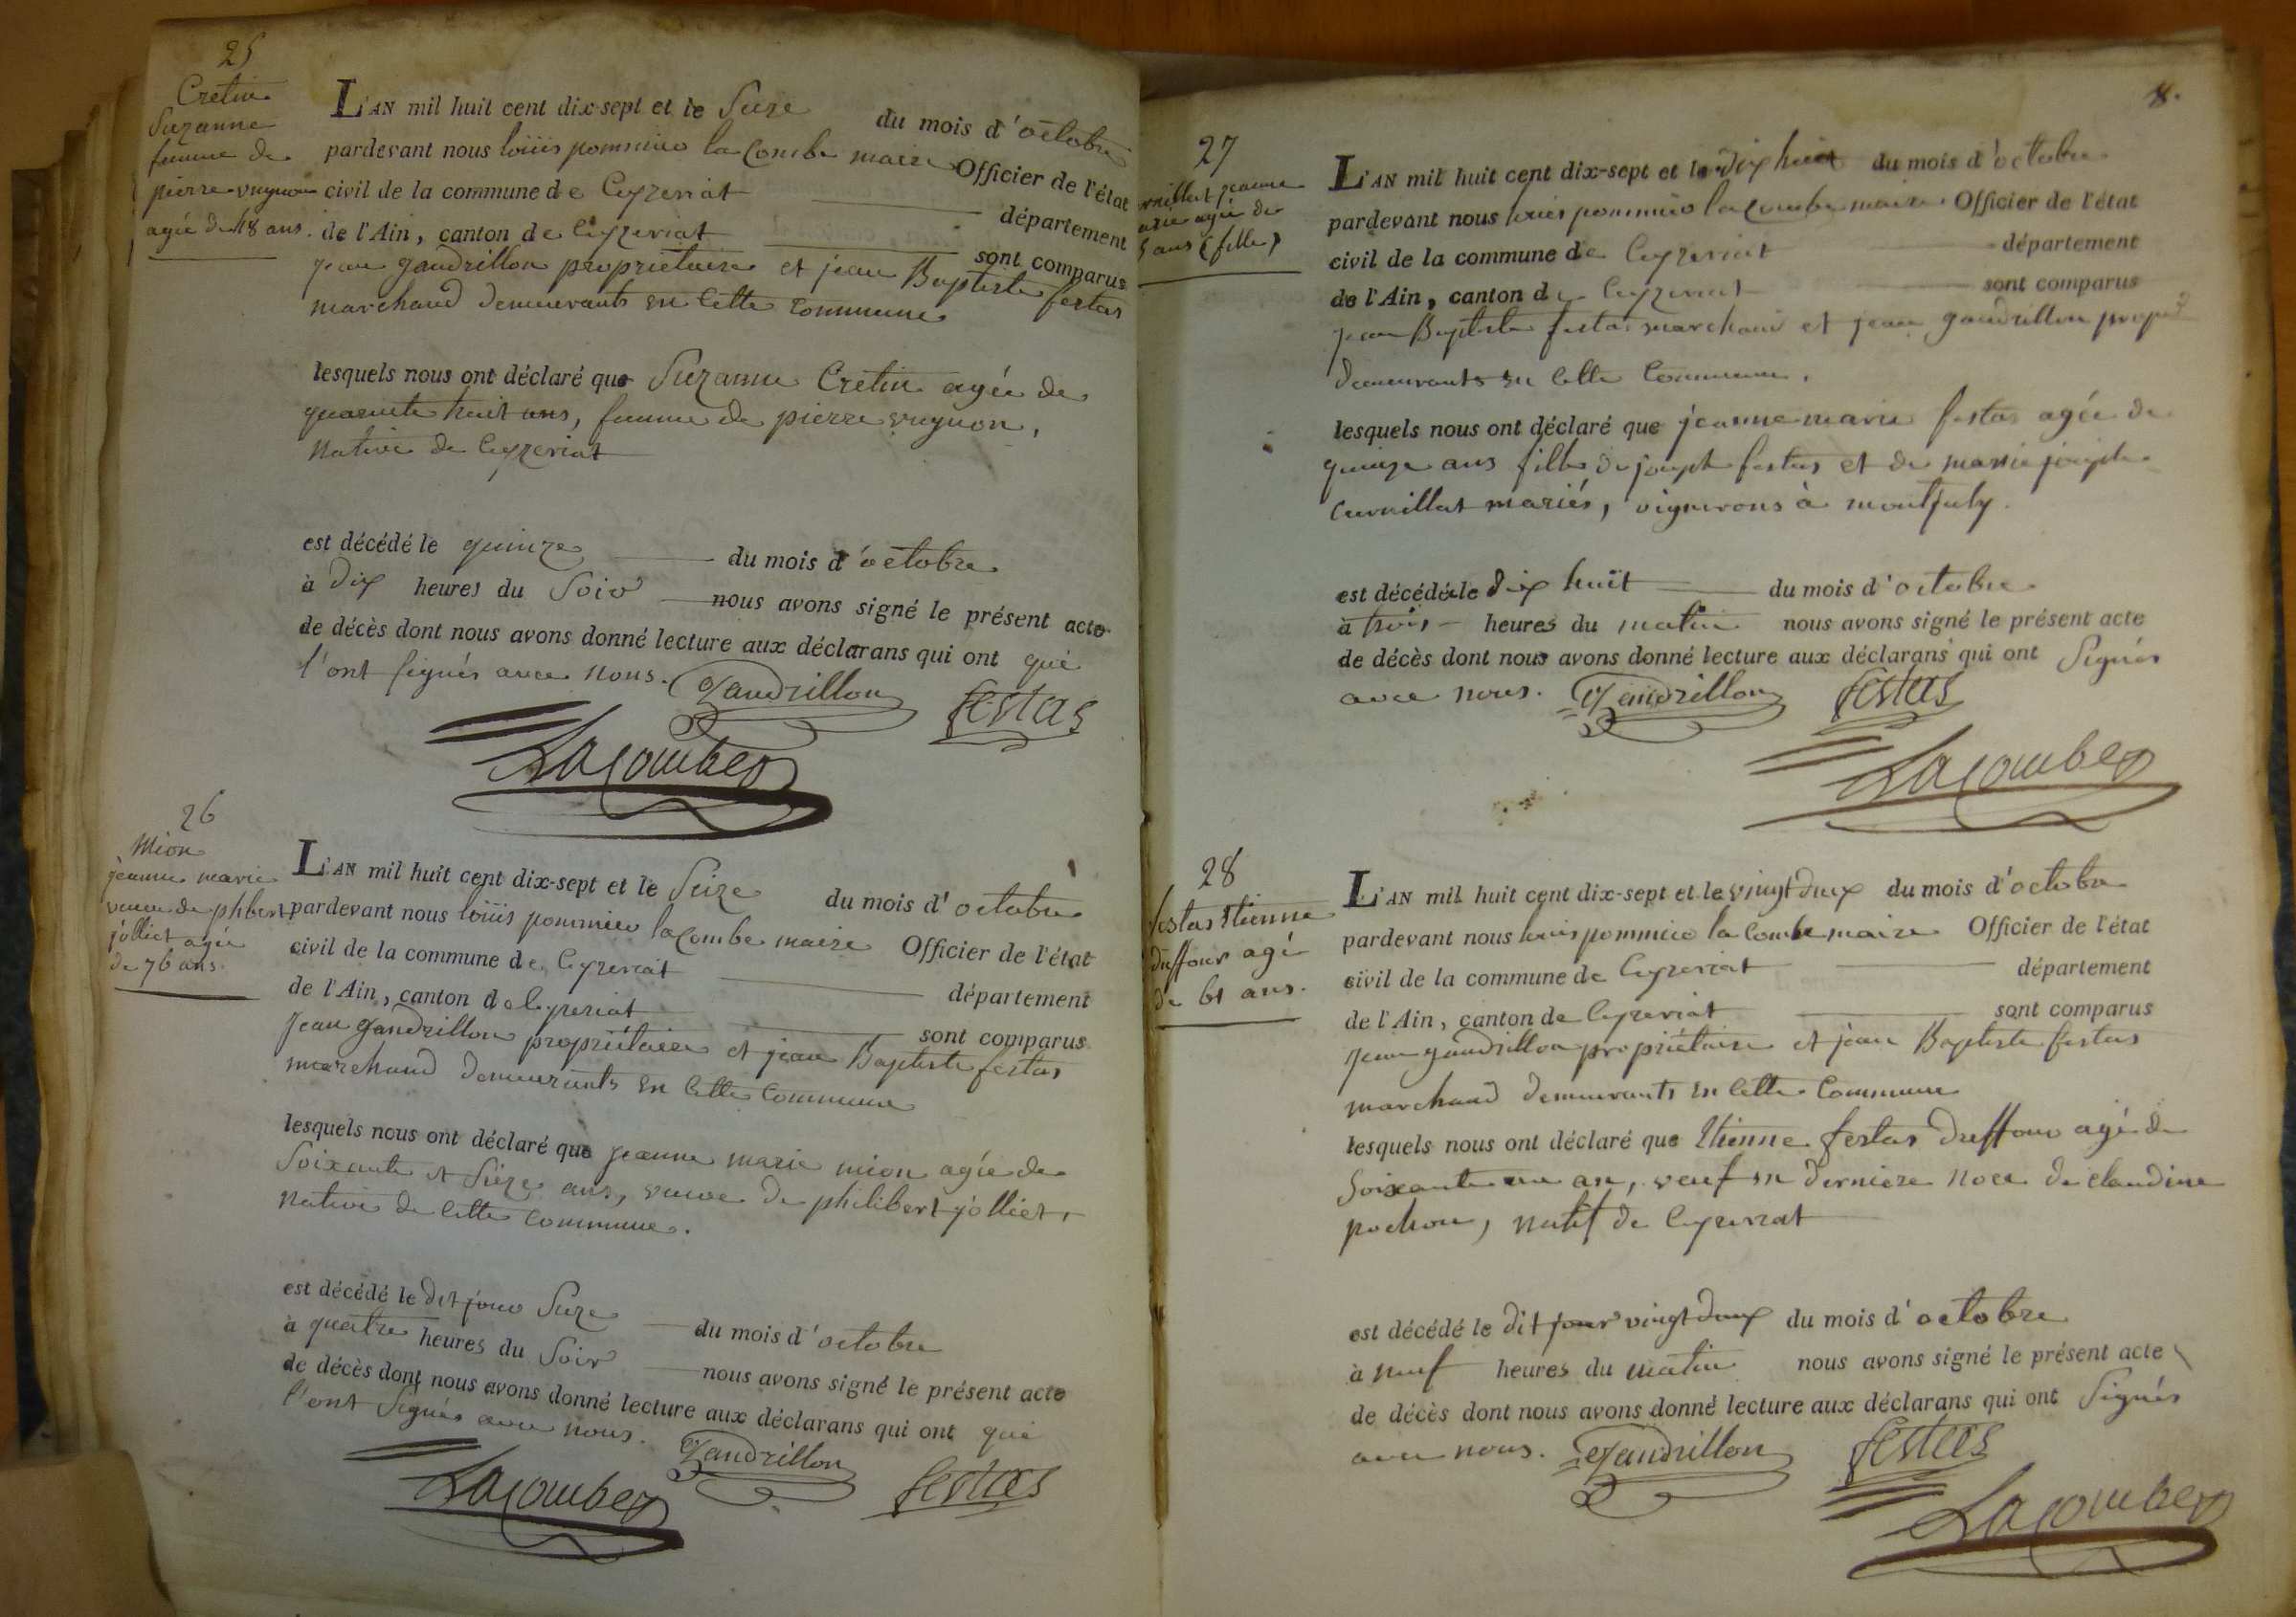 25
Cretin
Suzanne
femme de
pierre vuynon
agée de 48 ans.
L'AN mil huit cent dix-sept et le Seize du mois d'octobre
pardevant nous loüis pommier la Combe maire Officier de l'état
civil de la commune de Ceyzeriat département
de l'Ain, canton de Ceyzeriat sont comparus
jean gandrillon propriétaire et jean Baptiste festas
marchand demeurants en Cette Commune
lesquels nous ont déclaré que Suzanne Cretin agée de
quarente huit ans, femme de pierre vuynon,
native de Ceyzeriat
est décédé le quinze du mois d'octobre
à dix heures du Soir nous avons signé le présent acte
de décès dont nous avons donné lecture aux déclarans qui ont qui
l'ont signés avec nous. Gandrillon festas
Lacombe
26
Mion
jeanne marie
veuve de phibert
jolliet agée
de 76 ans.
L'AN mil huit cent dix-sept et le Seize du mois d'octobre
pardevant nous loüis pommier la Combe maire Officier de l'état
civil de la commune de Ceyzeriat département
de l'Ain, canton de Ceyzeriat sont comparus
Jean gandrillon propriétaire et jean Baptiste festas
marchand demeurants en Cette Commune
lesquels nous ont déclaré que jeanne marie mion agée de
Soixante et Sieze ans, veuve de philibert jolliet,
native de Cette Commune.
est décédé le dit jour Seize du mois d'octobre
à quatre heures du Soir nous avons signé le présent acte
de décès dont nous avons donné lecture aux déclarans qui ont qui
l'ont Signés avec nous. Gandrillon festas
Lacombe
8.
27
jeanne
agée de
ans (fille)
L'AN mil huit cent dix-sept et le dix huit du mois d'octobre
pardevant nous louis pommier la Combe maire Officier de l'état
civil de la commune de Ceyzeriat département
de l'Ain, canton de Ceyzeriat sont comparus
jean Baptiste festas marchand et jean gandrillon propre
demeurants en Cette Commune.
lesquels nous ont déclaré que jeanne marie festas agée de
quinze ans fille de joseph festas et de marie josephe
Curnillat mariés, vignerons à montjuly.
est décédée le dix huit du mois d'octobre
à trois heures du matin nous avons signé le présent acte
de décès dont nous avons donné lecture aux déclarans qui ont Signés
avec nous. Gandrillon festas
Lacombe
28
festas Etienne
duffour agé
de 61 ans.
L'AN mil huit cent dix-sept et le vingt deux du mois d'octobre
pardevant nous louis pommier la Combe maire Officier de l'état
civil de la commune de Ceyzeriat département
de l'Ain, canton de Ceyzeriat sont comparus
Jean gandrillon propriétaire et jean Baptiste festas
marchand demeurants en Cette Commune
lesquels nous ont déclaré que Etienne festas duffour agé de
Soixante un an, veuf en derniere noce de claudine
pochon, natif de Ceyzeriat
est décédé le dit jour vingt deux du mois d'octobre
à neuf heures du matin nous avons signé le présent acte
de décès dont nous avons donné lecture aux déclarans qui ont Signés
avec nous. Gandrillon festas
Lacombe